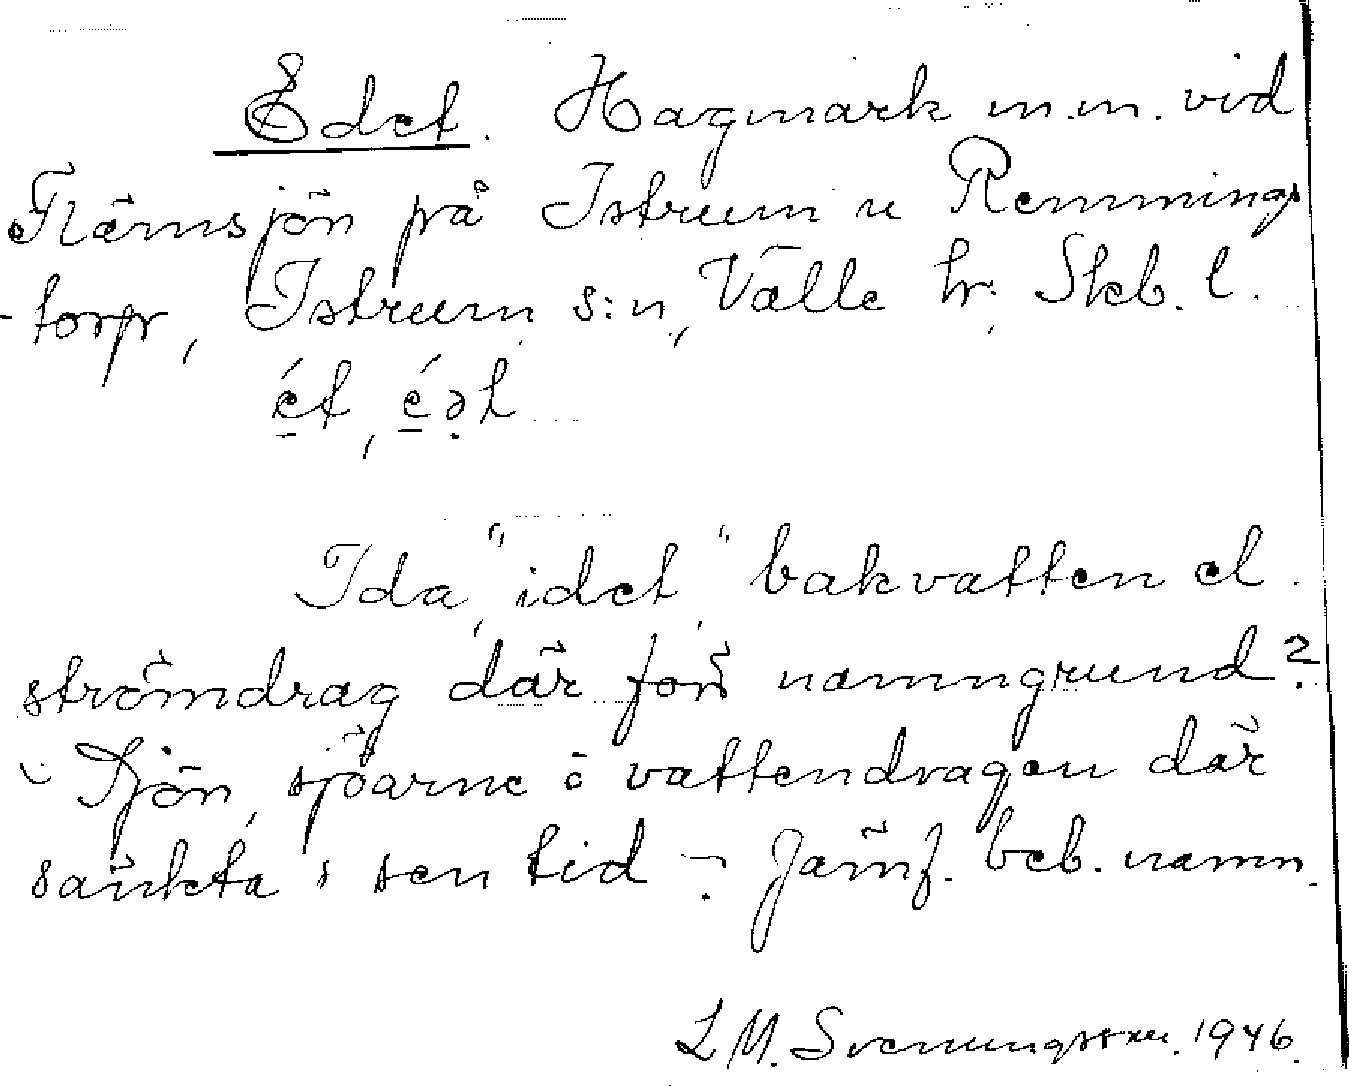 Edet. Hagmark m.m. vid
Flämsjön på Istrum u Remmings
-torp, Istrum s:n, Valle hr. Skb. l.
ét, éət
Ida, "idet", bakvatten el.
strömdrag där förr namngrund?
Sjön, sjöarne o vattendragen där
sänkta i sen tid - Jämf. beb. namn.
L M. Svenungsson. 1946.